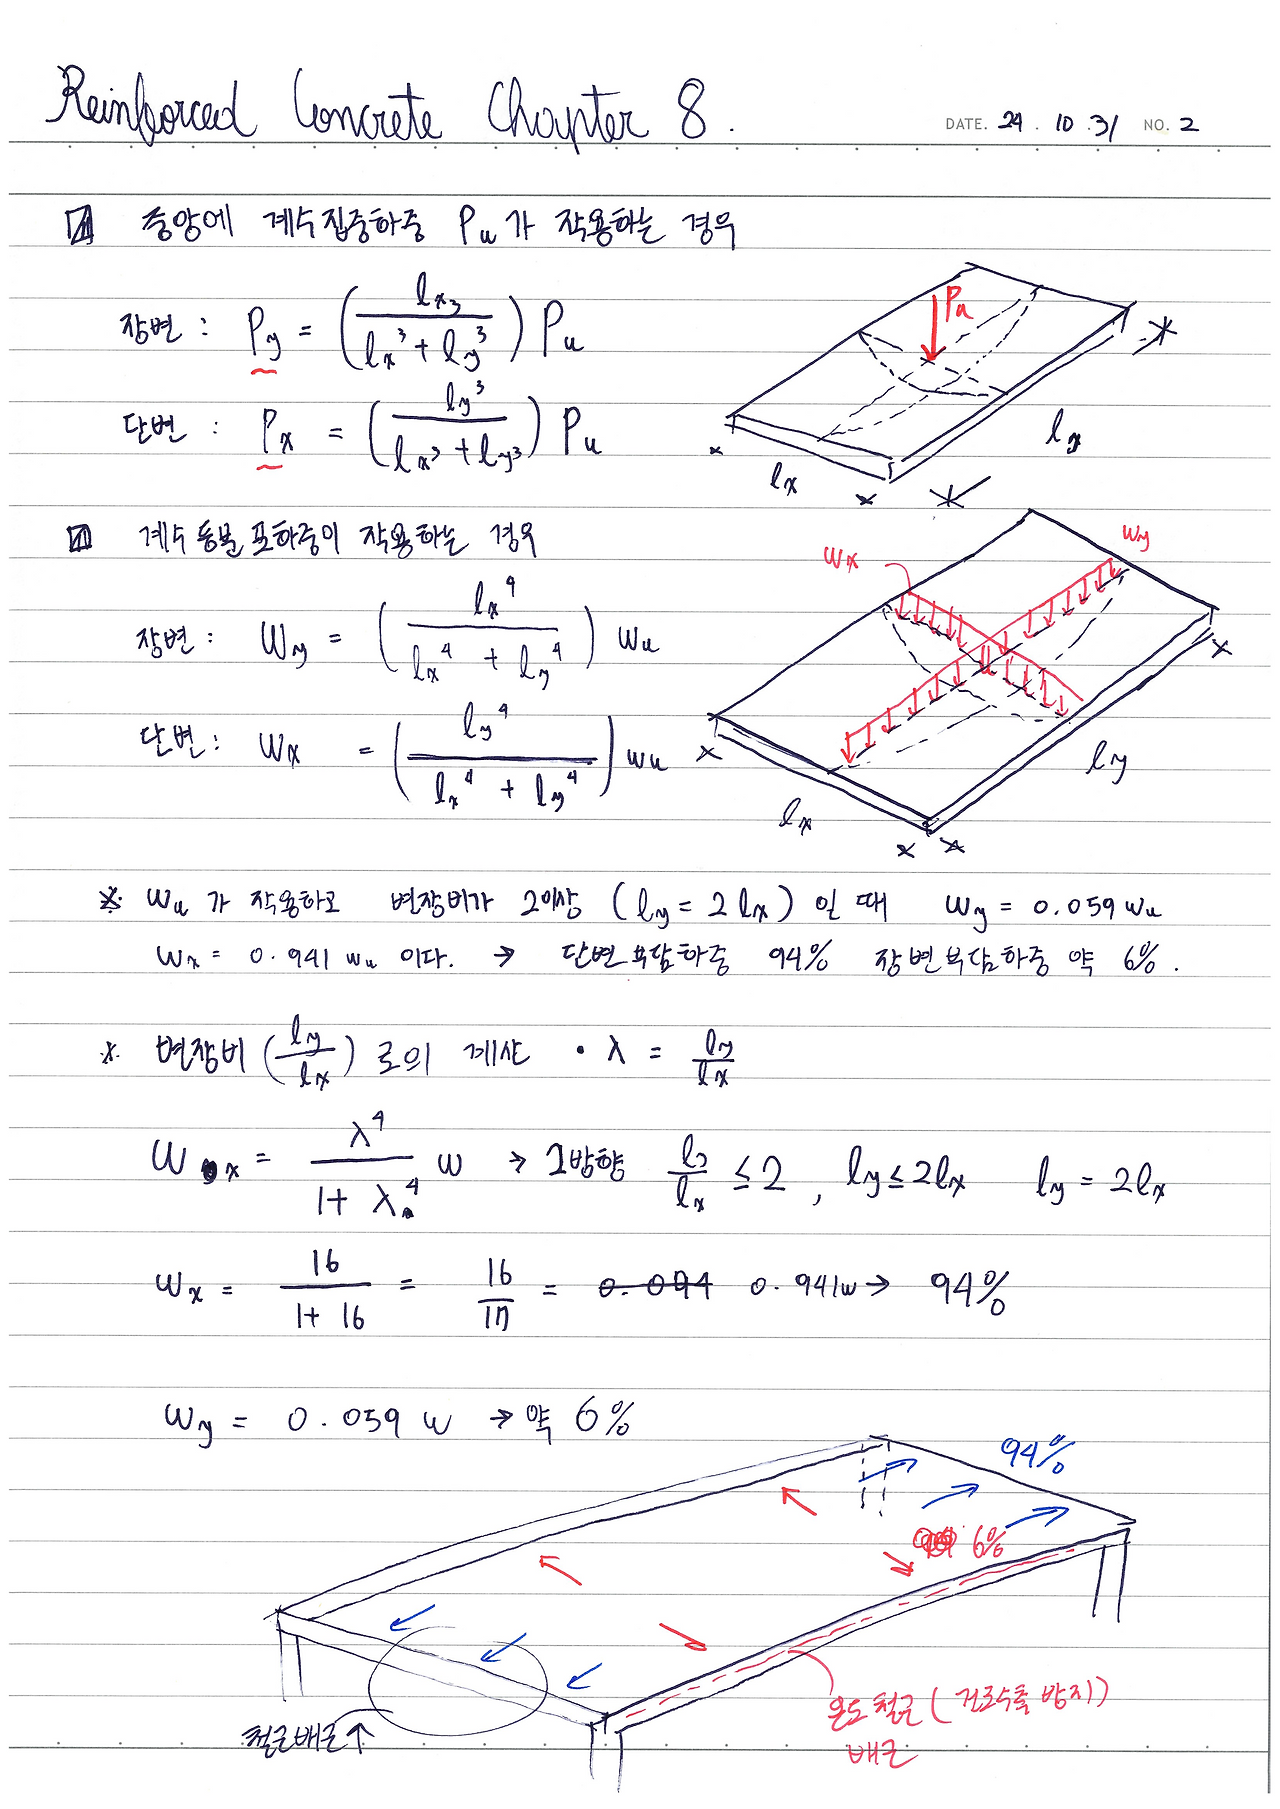 Reinforced Concrete Chapter 8.
DATE. 24 . 10 . 31 NO. 2
중앙에 계수집중하중 Pu가 작용하는 경우
장변 : Py = (lx3 / lx³ + ly³) Pu
단변 : Px = (ly³ / lx³ + ly³) Pu
Pu
lx
ly
계수등분포하중이 작용하는 경우
장변 : Wy = (lx⁴ / lx⁴ + ly⁴) Wu
단변 : Wx = (ly⁴ / lx⁴ + ly⁴) Wu
Wx
Wy
lx
ly
※ Wu 가 작용하고 변장비가 2이상 (ly = 2lx) 일 때 Wy = 0.059 Wu
Wx = 0.941 Wu 이다. → 단변부담하중 94% 장변부담하중 약 6%.
※ 변장비 (ly / lx) 로의 계산 • λ = ly / lx
Wx = λ⁴ / 1 + λ⁴ W → 2방향 ly / lx ≤ 2 , ly ≤ 2lx ly = 2lx
Wx = 16 / 1 + 16 = 16 / 17 = 0.094 0.941w → 94%
Wy = 0.059 W → 약 6%
94%
6%
철근배근↑
온도철근 (건조수축 방지)
배근